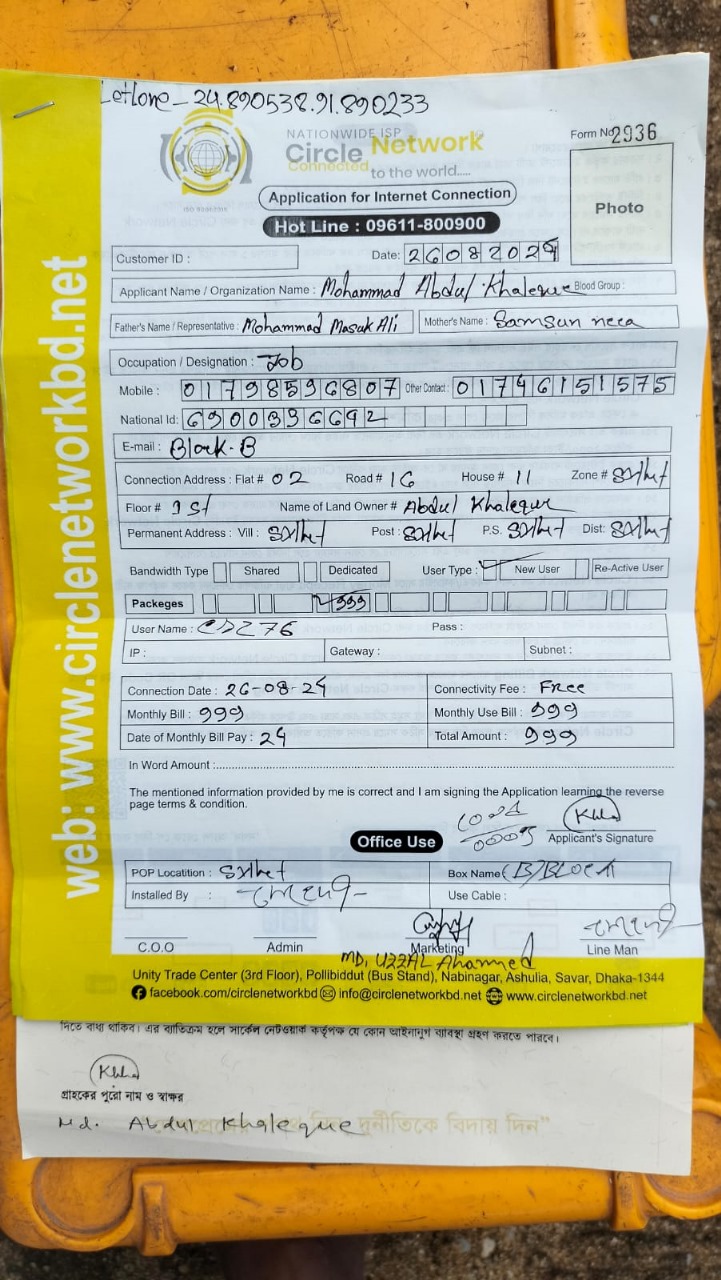 24.890538.91.890233
NATIONWIDE ISP
Circle Network
Connected to the world.....
Form No 2936
Photo
Application for Internet Connection
Hot Line : 09611-800900
Customer ID :
Date: 26082024
Applicant Name / Organization Name : Mohammad Abdul Khaleque Blood Group :
Father's Name / Representative : Mohammad Masuk Ali Mother's Name : Samsun neea
Occupation / Designation : Job
Mobile : 01798596807 Other Contact : 01746151575
National Id: 6900396692
E-mail : Block-B
Connection Address : Flat # 02 Road # 16 House # 11 Zone # Sylhet
Floor # 1st Name of Land Owner # Abdul Khaleque
Permanent Address : Vill : Sylhet Post : Sylhet P.S. Sylhet Dist: Sylhet
Bandwidth Type Shared Dedicated User Type : New User Re-Active User
Packeges 999
User Name : Pass :
IP : Gateway : Subnet :
Connection Date : 26-08-24 Connectivity Fee : Free
Monthly Bill : 999 Monthly Use Bill : 999
Date of Monthly Bill Pay : 24 Total Amount : 999
In Word Amount :
The mentioned information provided by me is correct and I am signing the Application learning the reverse
page terms & condition.
Applicant's Signature
Office Use
POP Locatition : Sylhet Box Name
Installed By : Use Cable :
C.O.O Admin Marketing Line Man
MD. UZZAL Ahammed
Unity Trade Center (3rd Floor), Pollibiddut (Bus Stand), Nabinagar, Ashulia, Savar, Dhaka-1344
facebook.com/circlenetworkbd info@circlenetworkbd.net www.circlenetworkbd.net
web: www.circlenetworkbd.net
দিতে বাধ্য থাকিব। এর ব্যতিক্রম হলে সার্কেল নেটওয়ার্ক কর্তৃপক্ষ যে কোন আইনানুগ ব্যবস্থা গ্রহণ করতে পারবে।
গ্রাহকের পুরো নাম ও স্বাক্ষর
Md. Abdul Khaleque
দুর্নীতিকে বিদায় দিন"